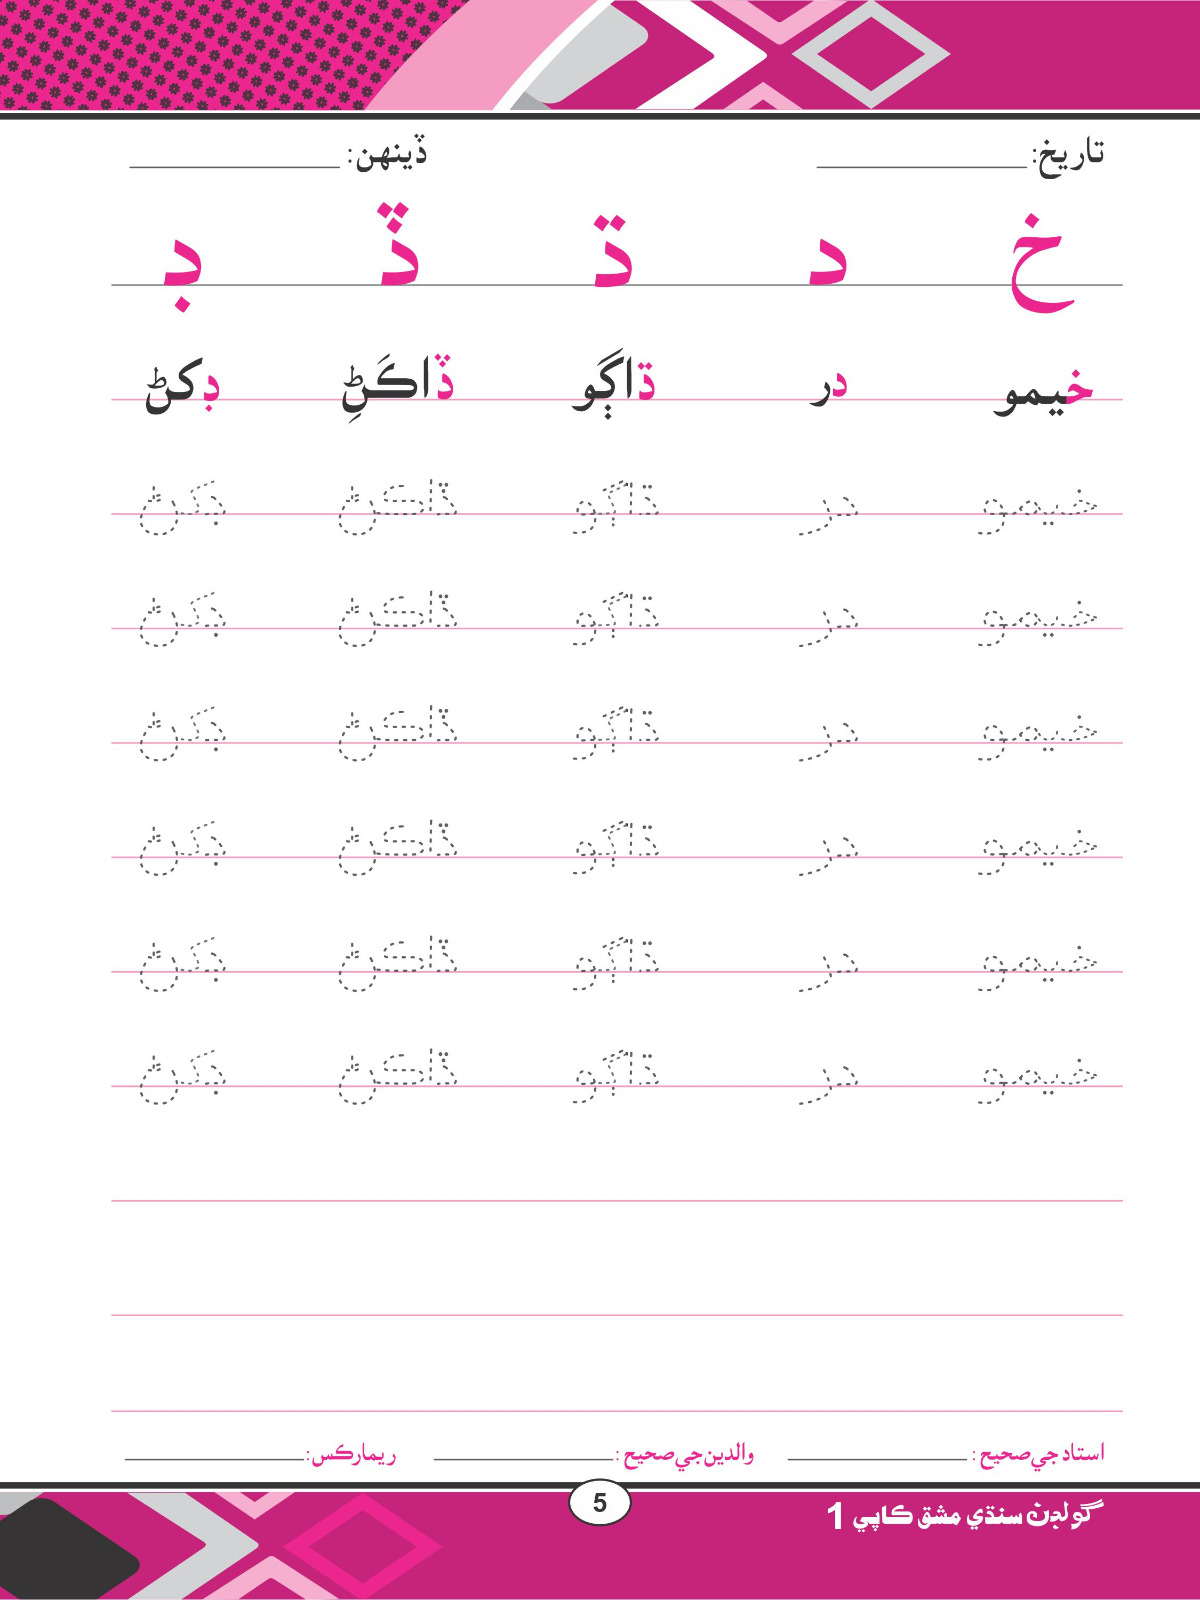 تاريخ: ڏينهن:
خ د ڌ ڏ ڊ
خيمو در ڌاڳو ڏاڪَڻِ ڊکڻ
خيمو در ڌاڳو ڏاڪڻ ڊکڻ
خيمو در ڌاڳو ڏاڪڻ ڊکڻ
خيمو در ڌاڳو ڏاڪڻ ڊکڻ
خيمو در ڌاڳو ڏاڪڻ ڊکڻ
خيمو در ڌاڳو ڏاڪڻ ڊکڻ
خيمو در ڌاڳو ڏاڪڻ ڊکڻ
استاد جي صحيح : والدين جي صحيح : ريمارڪس:
گولڊن سنڌي مشق ڪاپي 1
5